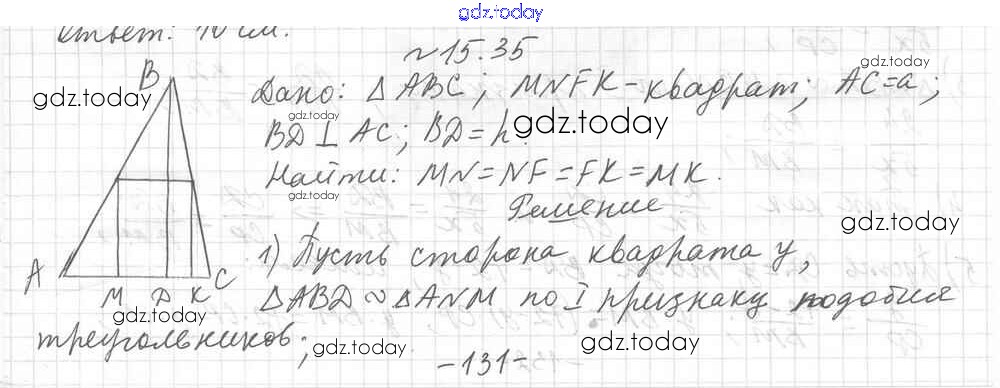 gdz.today
Ответ: 10 см.
~15.35
gdz.today
B
gdz.today
Дано: △ABC; MNFK-квадрат; AC=a;
gdz.today
BD⊥AC; BD=h.
gdz.today
Найти: MN=NF=FK=MK.
gdz.today
Решение
gdz.today
1) Пусть сторона квадрата y,
A
C
M D K
△ABD∾△ANM по I признаку подобия
gdz.today
треугольников;
gdz.today
gdz.today
-131-